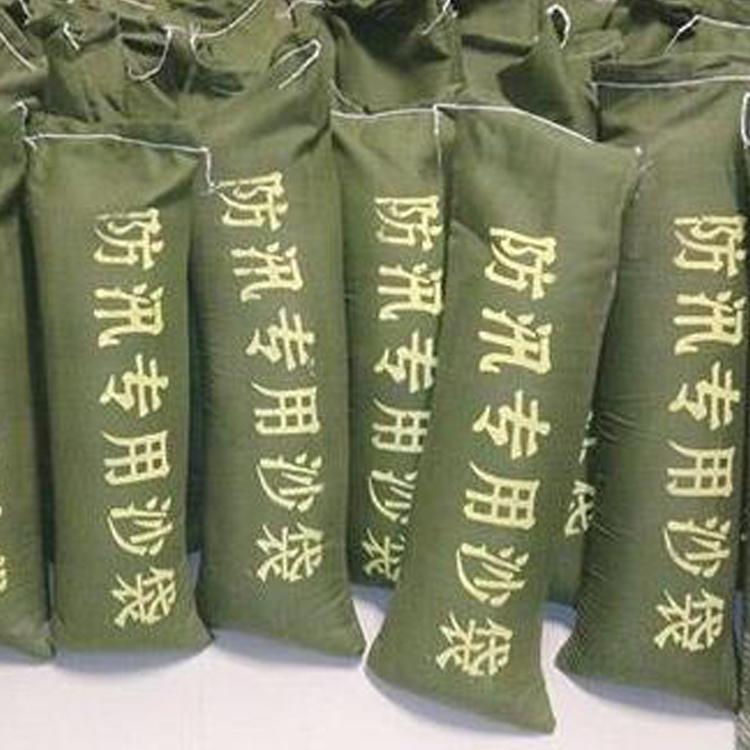 防汛专用沙袋
防汛专用沙袋
防汛专用沙袋
防汛专用沙袋
防汛专用沙袋